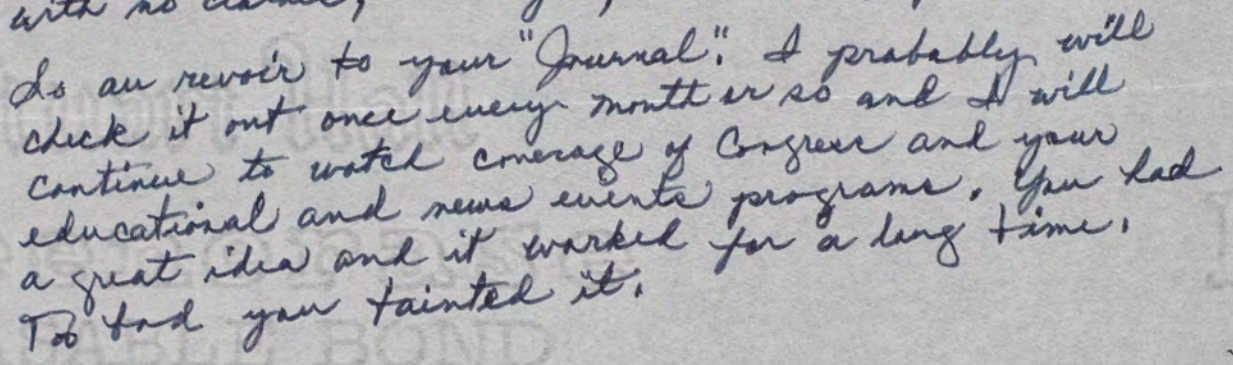 with no
So au revoir to your "Journal". I probably will
check it out once every month or so and I will
continue to watch coverage of Congress and your
educational and news events programs. You had
a great idea and it worked for a long time.
Too bad you tainted it.
BOND